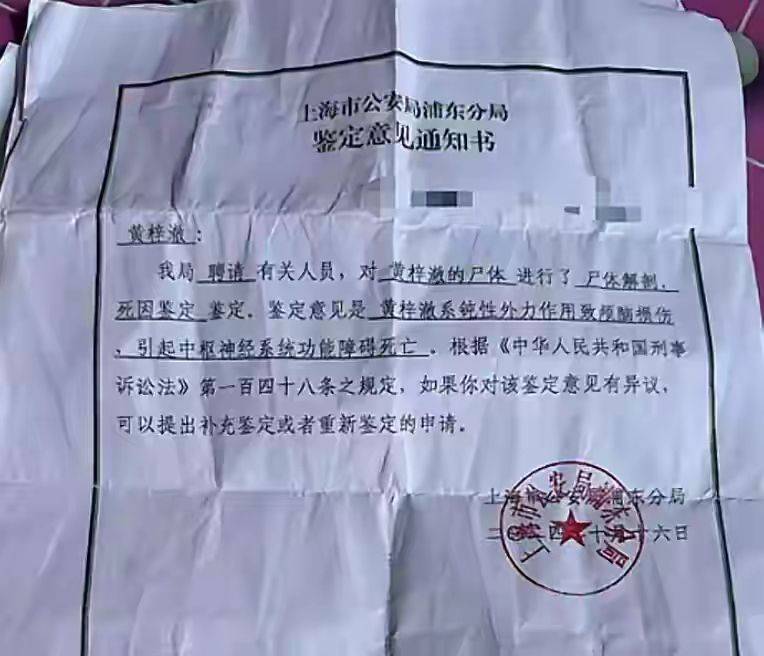 上海市公安局浦东分局
鉴定意见通知书
黄梓澈：
我局 聘请 有关人员，对 黄梓澈的尸体 进行了 尸体解剖、
死因鉴定 鉴定。鉴定意见是 黄梓澈系钝性外力作用致颅脑损伤
、引起中枢神经系统功能障碍死亡 。根据《中华人民共和国刑事
诉讼法》第一百四十八条之规定，如果你对该鉴定意见有异议，
可以提出补充鉴定或者重新鉴定的申请。
上海市公安局浦东分局
二〇 四 十 十六日
上海市公安局浦东分局